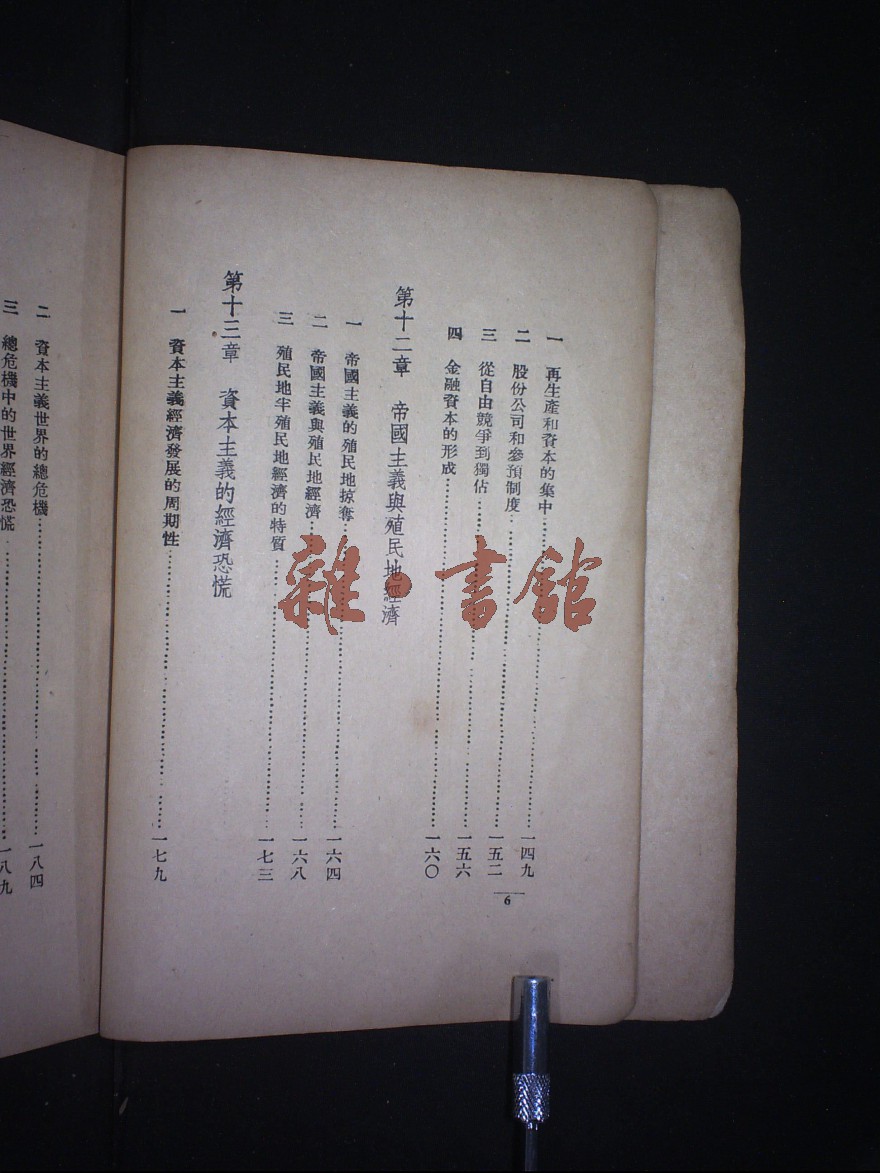 一　再生產和資本的集中……一四九
二　股份公司和參預制度……一五二
三　從自由競爭到獨佔……一五六
四　金融資本的形成……一六〇
第十二章　帝國主義與殖民地經濟
一　帝國主義的殖民地掠奪……一六四
二　帝國主義與殖民地經濟……一六八
三　殖民地半殖民地經濟的特質……一七三
第十三章　資本主義的經濟恐慌
一　資本主義經濟發展的周期性……一七九
6
二　資本主義世界的總危機……一八四
三　總危機中的世界經濟恐慌……一八九
雜·書館